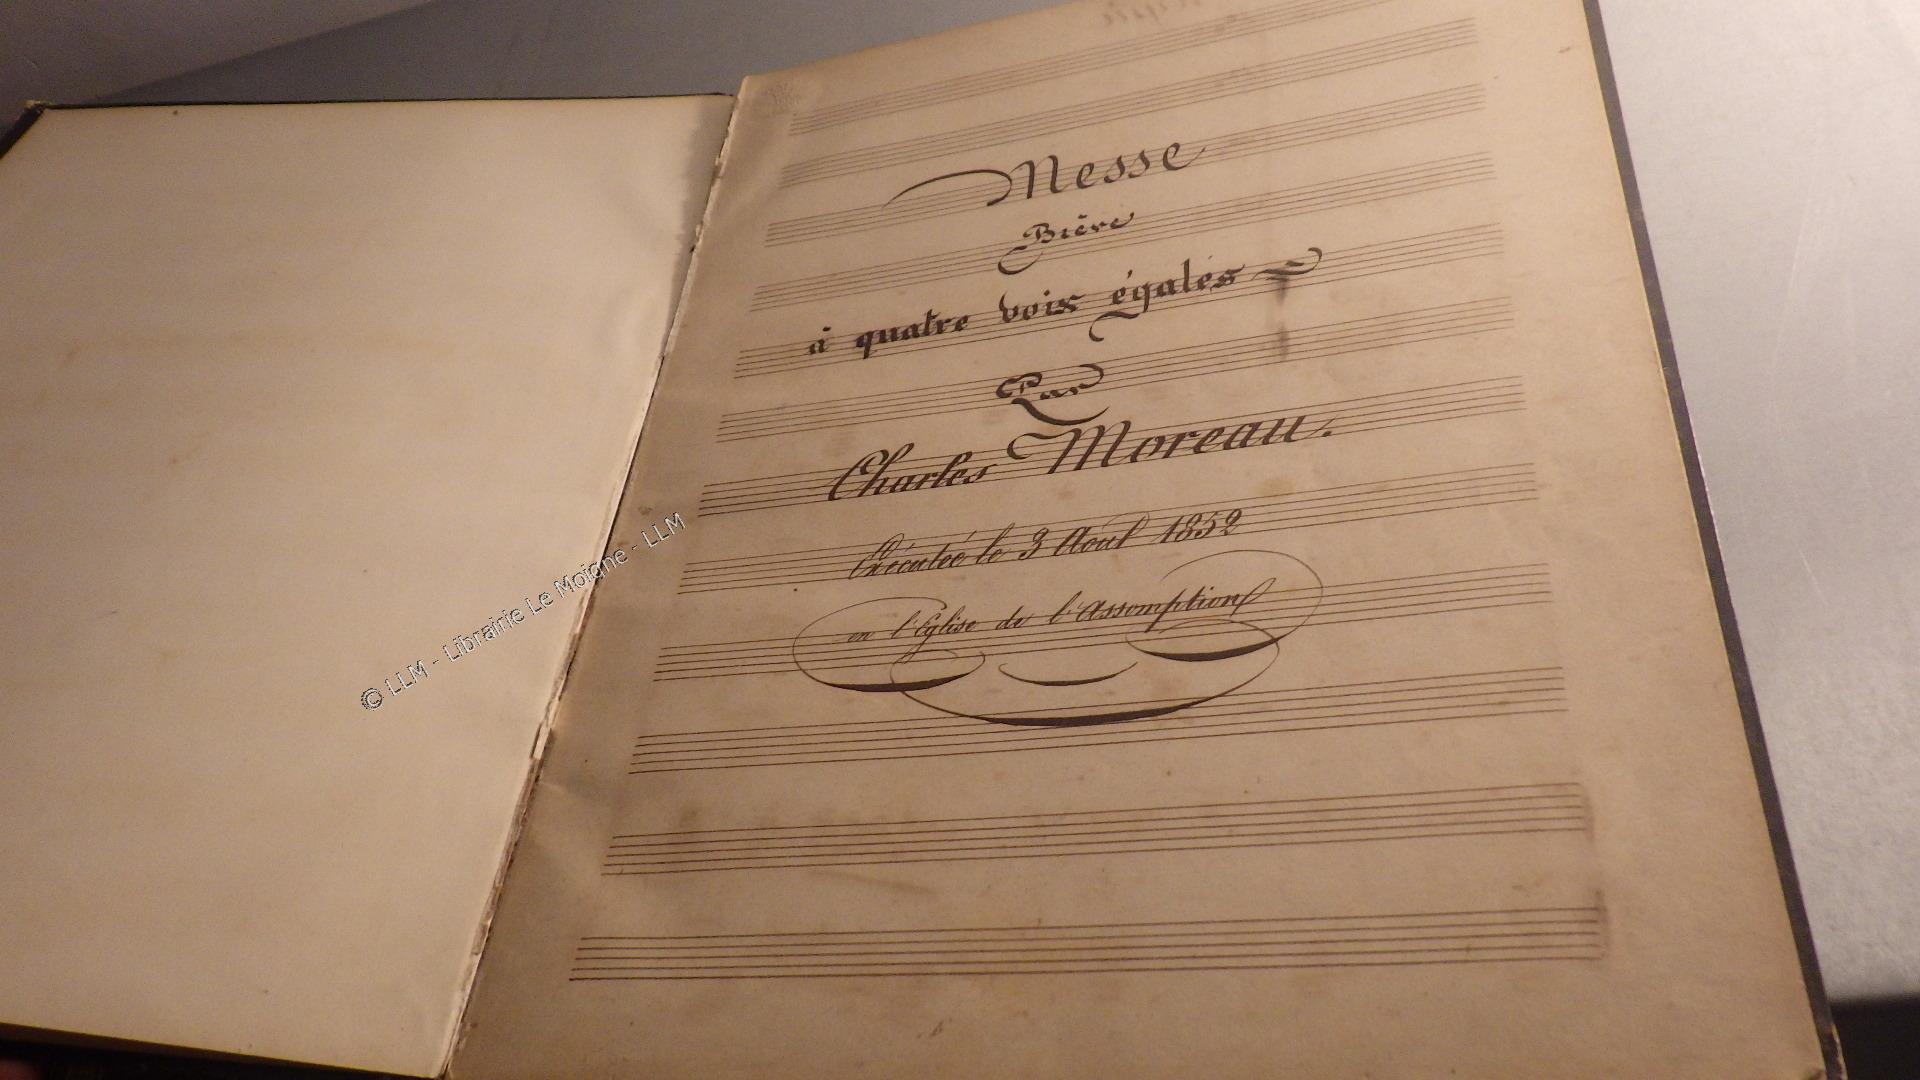 Messe
Brève
à quatre voix égales
Par
Charles Moreau.
Exécutée le 3 Août 1852
en l'Eglise de l'Assomption
© LLM - Librairie Le Moigne - LLM